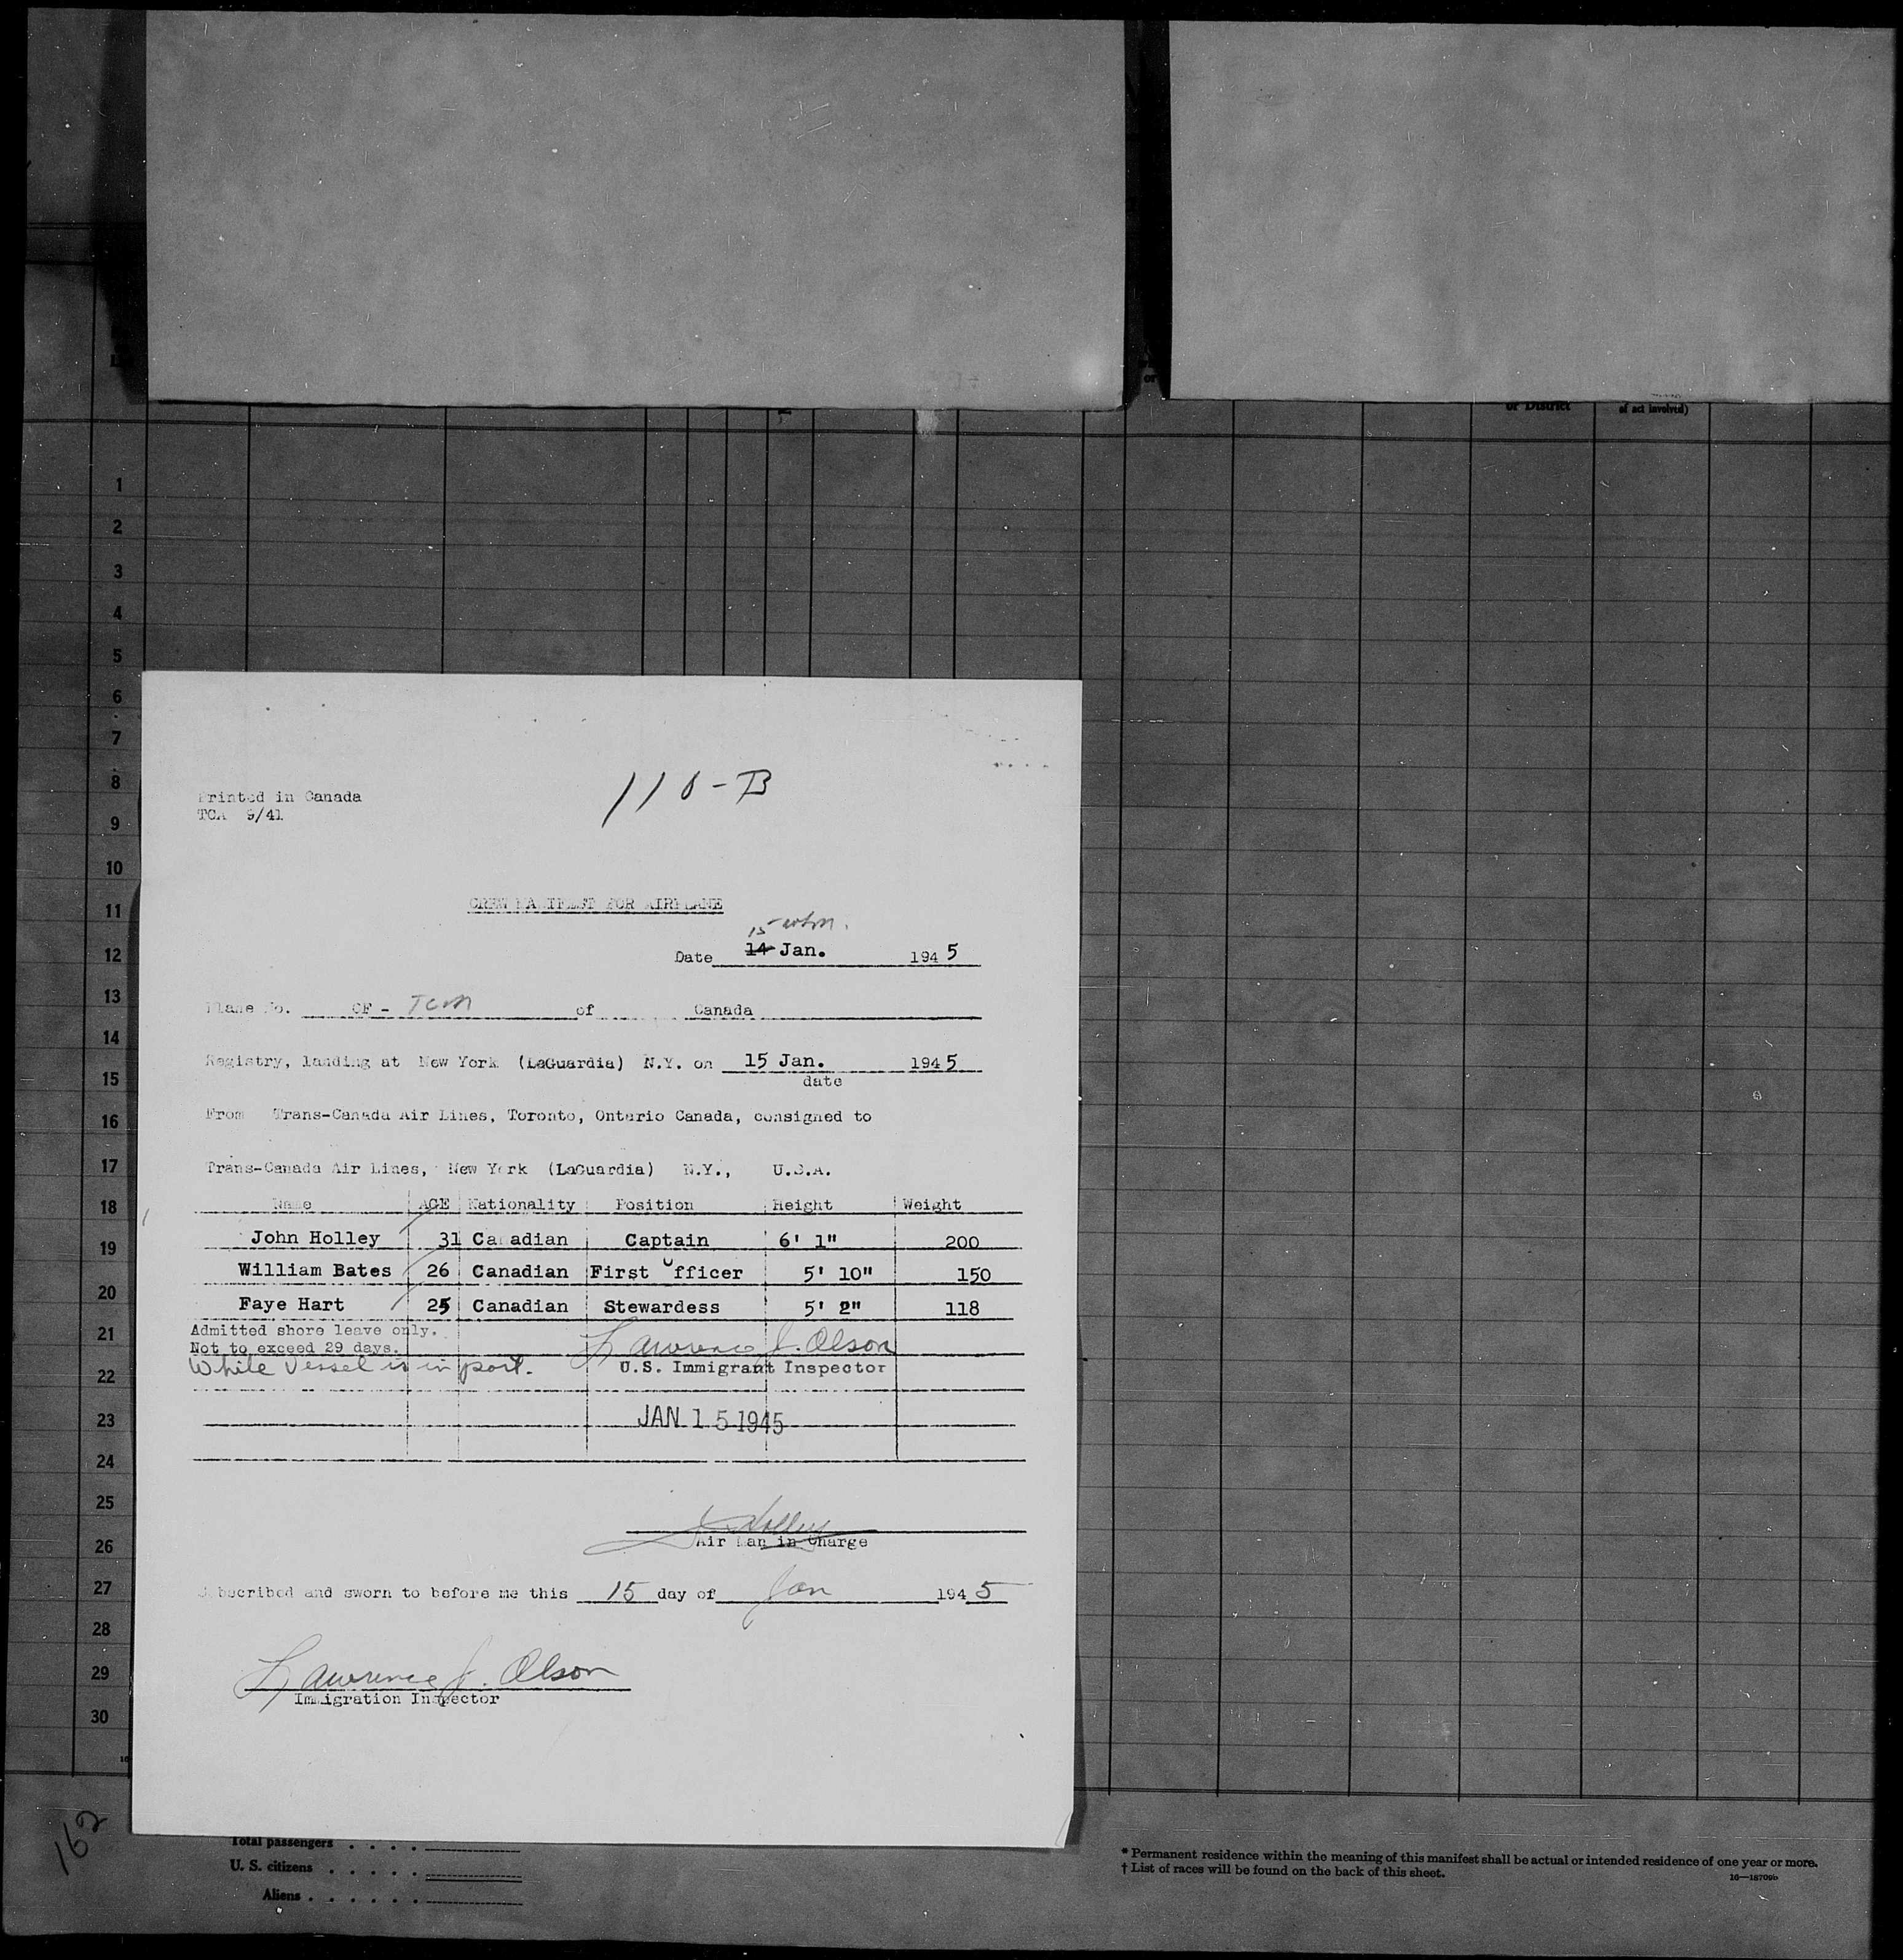 or District
of act involved)
1
2
3
4
5
6
7
8
9
10
11
12
13
14
15
16
17
18
19
20
21
22
23
24
25
26
27
28
29
30
Printed in Canada
TCA 9/41
110-B
CREW MANIFEST FOR AIRPLANE
15
Date 14 Jan. 1945
Plane No. CF - of Canada
Registry, landing at New York (LaGuardia) N.Y. on 15 Jan. 1945
date
From Trans-Canada Air Lines, Toronto, Ontario Canada, consigned to
Trans-Canada Air Lines, New York (LaGuardia) N.Y., U.S.A.
Name AGE Nationality Position Height Weight
John Holley 31 Canadian Captain 6' 1" 200
William Bates 26 Canadian First Officer 5' 10" 150
Faye Hart 25 Canadian Stewardess 5' 2" 118
Admitted shore leave only.
Not to exceed 29 days.
While Vessel is in port.
Lawrence J. Olson
U.S. Immigrant Inspector
JAN 15 1945
J. Holley
Air Man in Charge
Subscribed and sworn to before me this 15 day of Jan 1945
Lawrence J. Olson
Immigration Inspector
162
Total passengers . . . .
U. S. citizens . . . . .
Aliens . . . . . .
* Permanent residence within the meaning of this manifest shall be actual or intended residence of one year or more.
† List of races will be found on the back of this sheet.
16—18709b